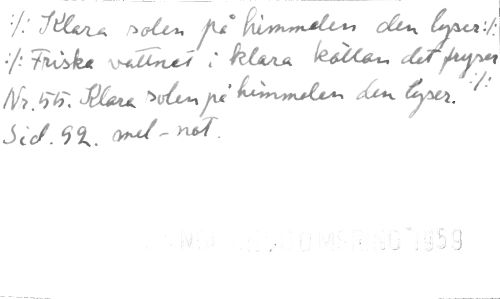 :/: Klara solen på himmelen den lyser:/:
:/: Friska vattnet i klara källan det fryser :/:
Nr. 55. Klara solen på himmelen den lyser.
Sid. 92. mel-not.
1959